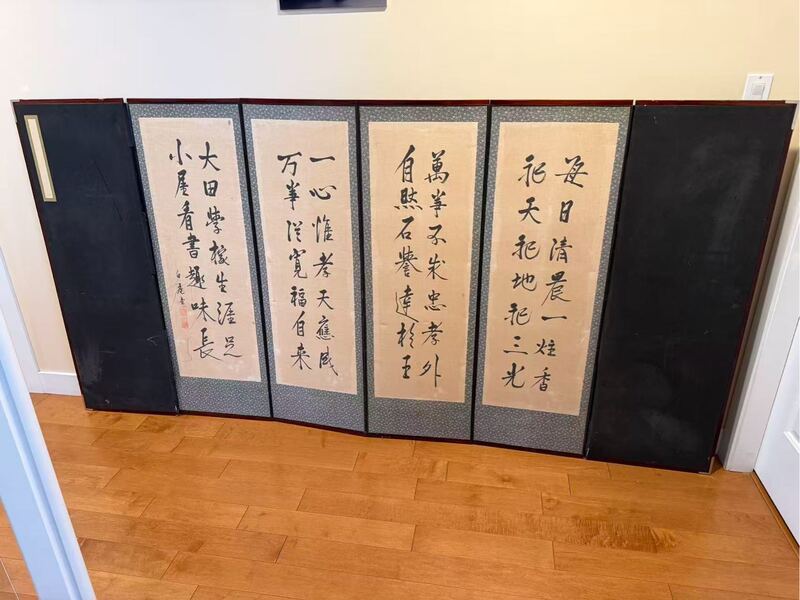 每日清晨一炷香
祀天祀地祀三光
萬事不求忠孝外
自然名譽達於王
一心惟孝天應感
万事從寬福自来
大田學稼生涯足
小屋看書趣味長